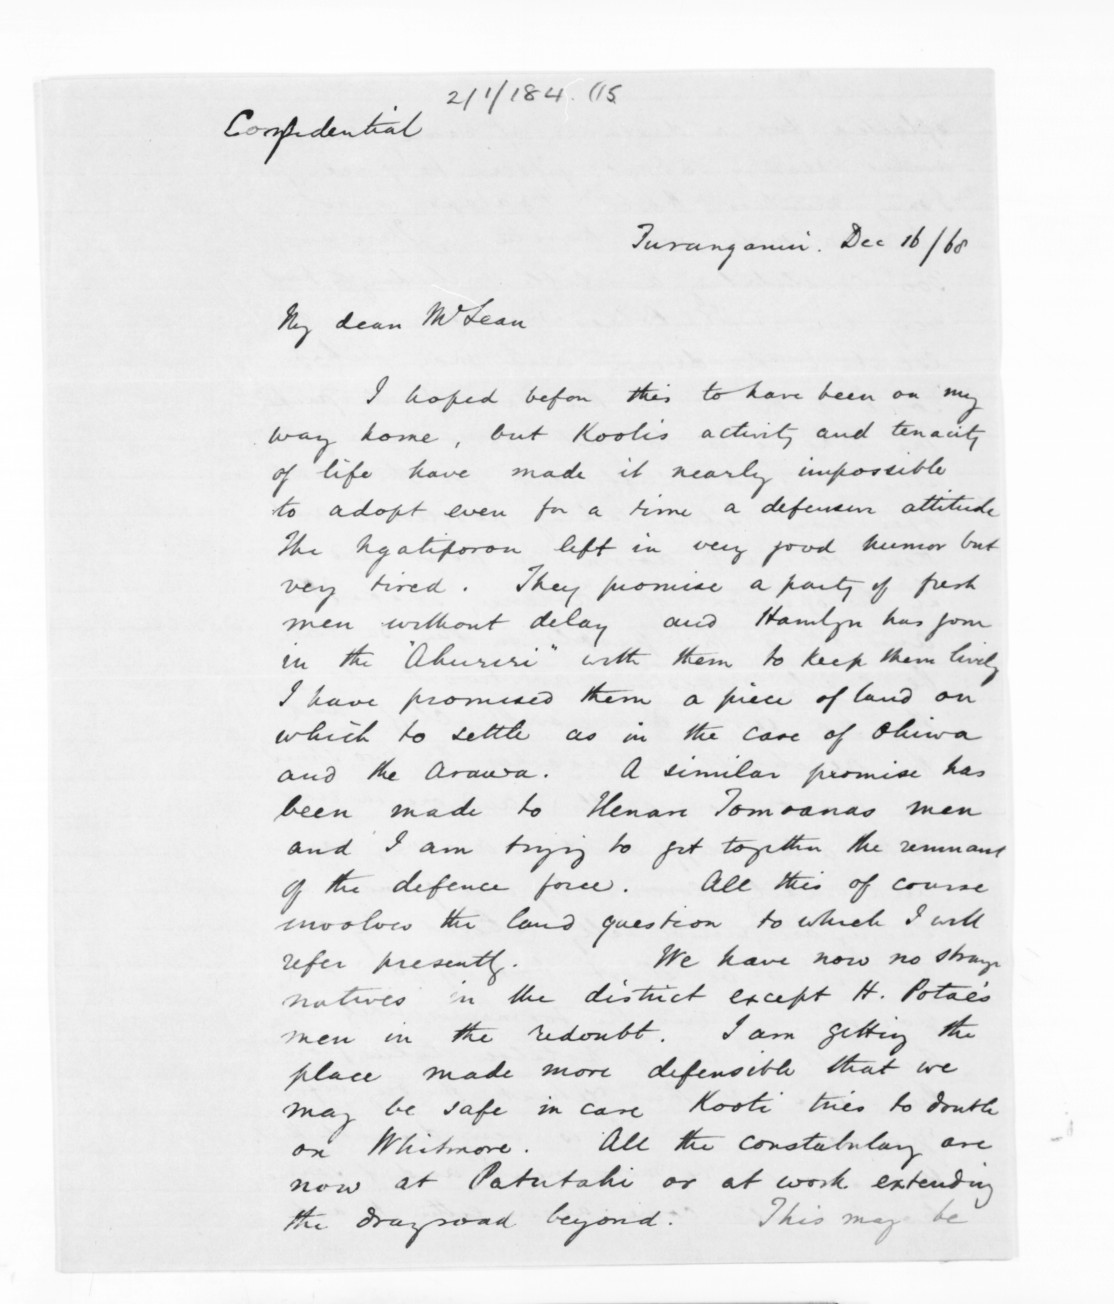 2/1/184. (15
Confidential
Turanganui. Dec 16/68
My dear McLean
I hoped before this to have been on my
way home, but Kooti's activity and tenacity
of life have made it nearly impossible
to adopt even for a time a defensive attitude
The Ngatiporou left in very good humor but
very tired. They promise a party of fresh
men without delay and Hamlyn has gone
in the "Ahuriri" with them to keep them lively
I have promised them a piece of land on
which to settle as in the case of Ohiwa
and the Arawa. A similar promise has
been made to Henare Tomoanas men
and I am trying to get together the remnant
of the defence force. All this of course
involves the land question to which I will
refer presently. We have now no strange
natives in the district except H. Potae's
men in the redoubt. I am getting the
place made more defensible that we
may be safe in case Kooti tries to double
on Whitmore. All the constabulary are
now at Patutahi or at work extending
the dray road beyond. This may be